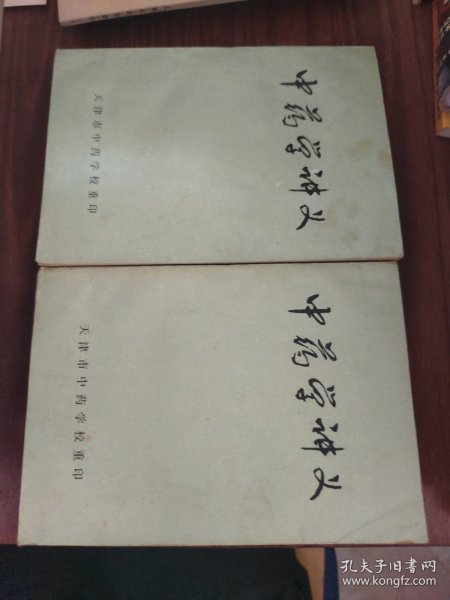 中药学讲义
天津市中药学校重印
中药学讲义
天津市中药学校重印
孔夫子旧书网
www.kongfz.com